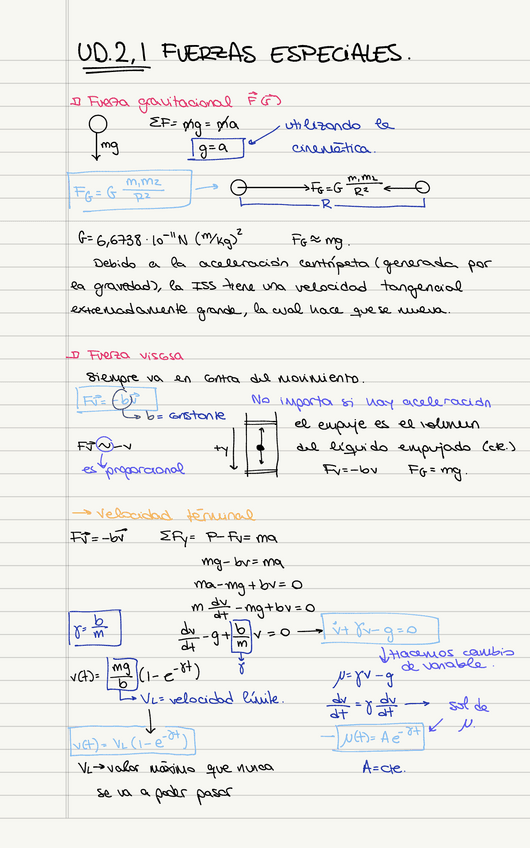 UD.2,1 FUERZAS ESPECIALES.
Fuerza gravitacional F⃗(r⃗)
ΣF = mg = ma
utilizando la
mg
g=a
cinemática.
F_G = G m₁m₂/R² → F_G = G m₁m₂/R²
R
G = 6,6738 · 10⁻¹¹ N (m/kg)² F_G ≈ mg.
Debido a la aceleración centrípeta (generada por
la gravedad), la ISS tiene una velocidad tangencial
extremadamente grande, la cual hace que se mueva.
Fuerza viscosa
Siempre va en contra del movimiento.
F⃗v = -bv⃗
No importa si hay aceleración
b = constante
el empuje es el volumen
Fv⃗ ~ -v
+y
del líquido empujado (cte.)
es proporcional
Fv = -bv F_G = mg.
→ velocidad terminal
Fv⃗ = -bv⃗ ΣFy = P - Fv = ma
mg - bv = ma
ma - mg + bv = 0
m dv/dt - mg + bv = 0
γ = b/m
dv/dt - g + b/m v = 0 → v̇ + γv - g = 0
γ
Hacemos cambio
de variable.
v(t) = mg/b (1 - e^-γt)
μ = γv - g
V_L = velocidad límite.
dv/dt = γ dv/dt → sol de
μ.
v(t) = V_L (1 - e^-γt)
→ μ(t) = A e^-γt
V_L → valor máximo que nunca
A = cte.
se va a poder pasar